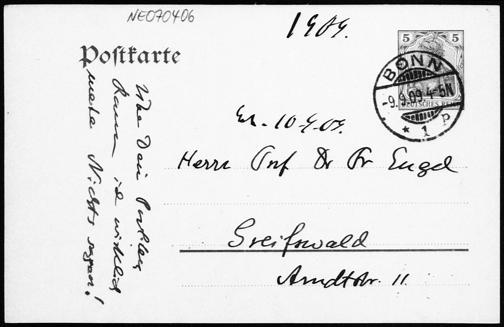 NE070406
1909.
Postkarte
5 5
DEUTSCHES REICH
BONN
-9.9.09.4-5N
* 1 P
10.9.09.
Herrn Prof Dr Fr Engel
Greifswald
Arndtstr. 11
Über Dein
kann ich wirklich
mehr Nichts sagen!